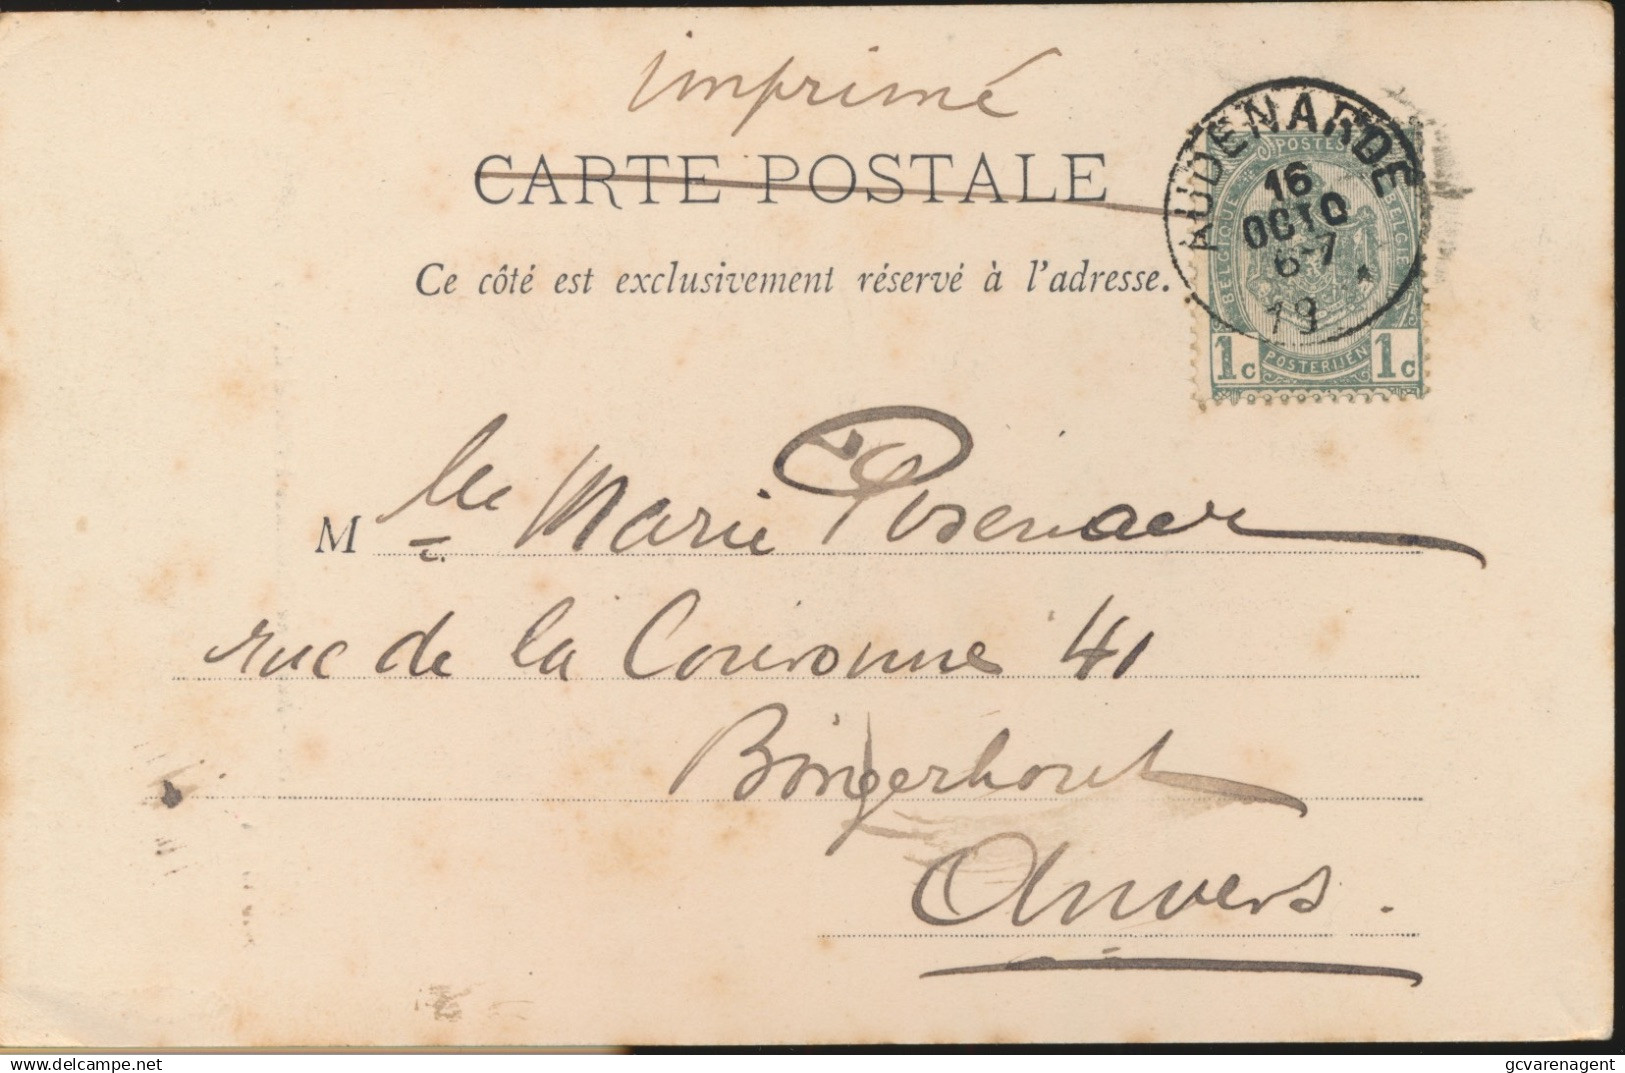 imprimé
CARTE POSTALE
Ce côté est exclusivement réservé à l'adresse.
AUDENARDE
16
OCTO
6-7
19
POSTES
BELGIQUE
BELGIE
1c POSTERIJEN 1c
Mlle Marie Posenaer
rue de la Couronne 41
Borgerhout
Anvers.
gcvarenagent
delcampe.net